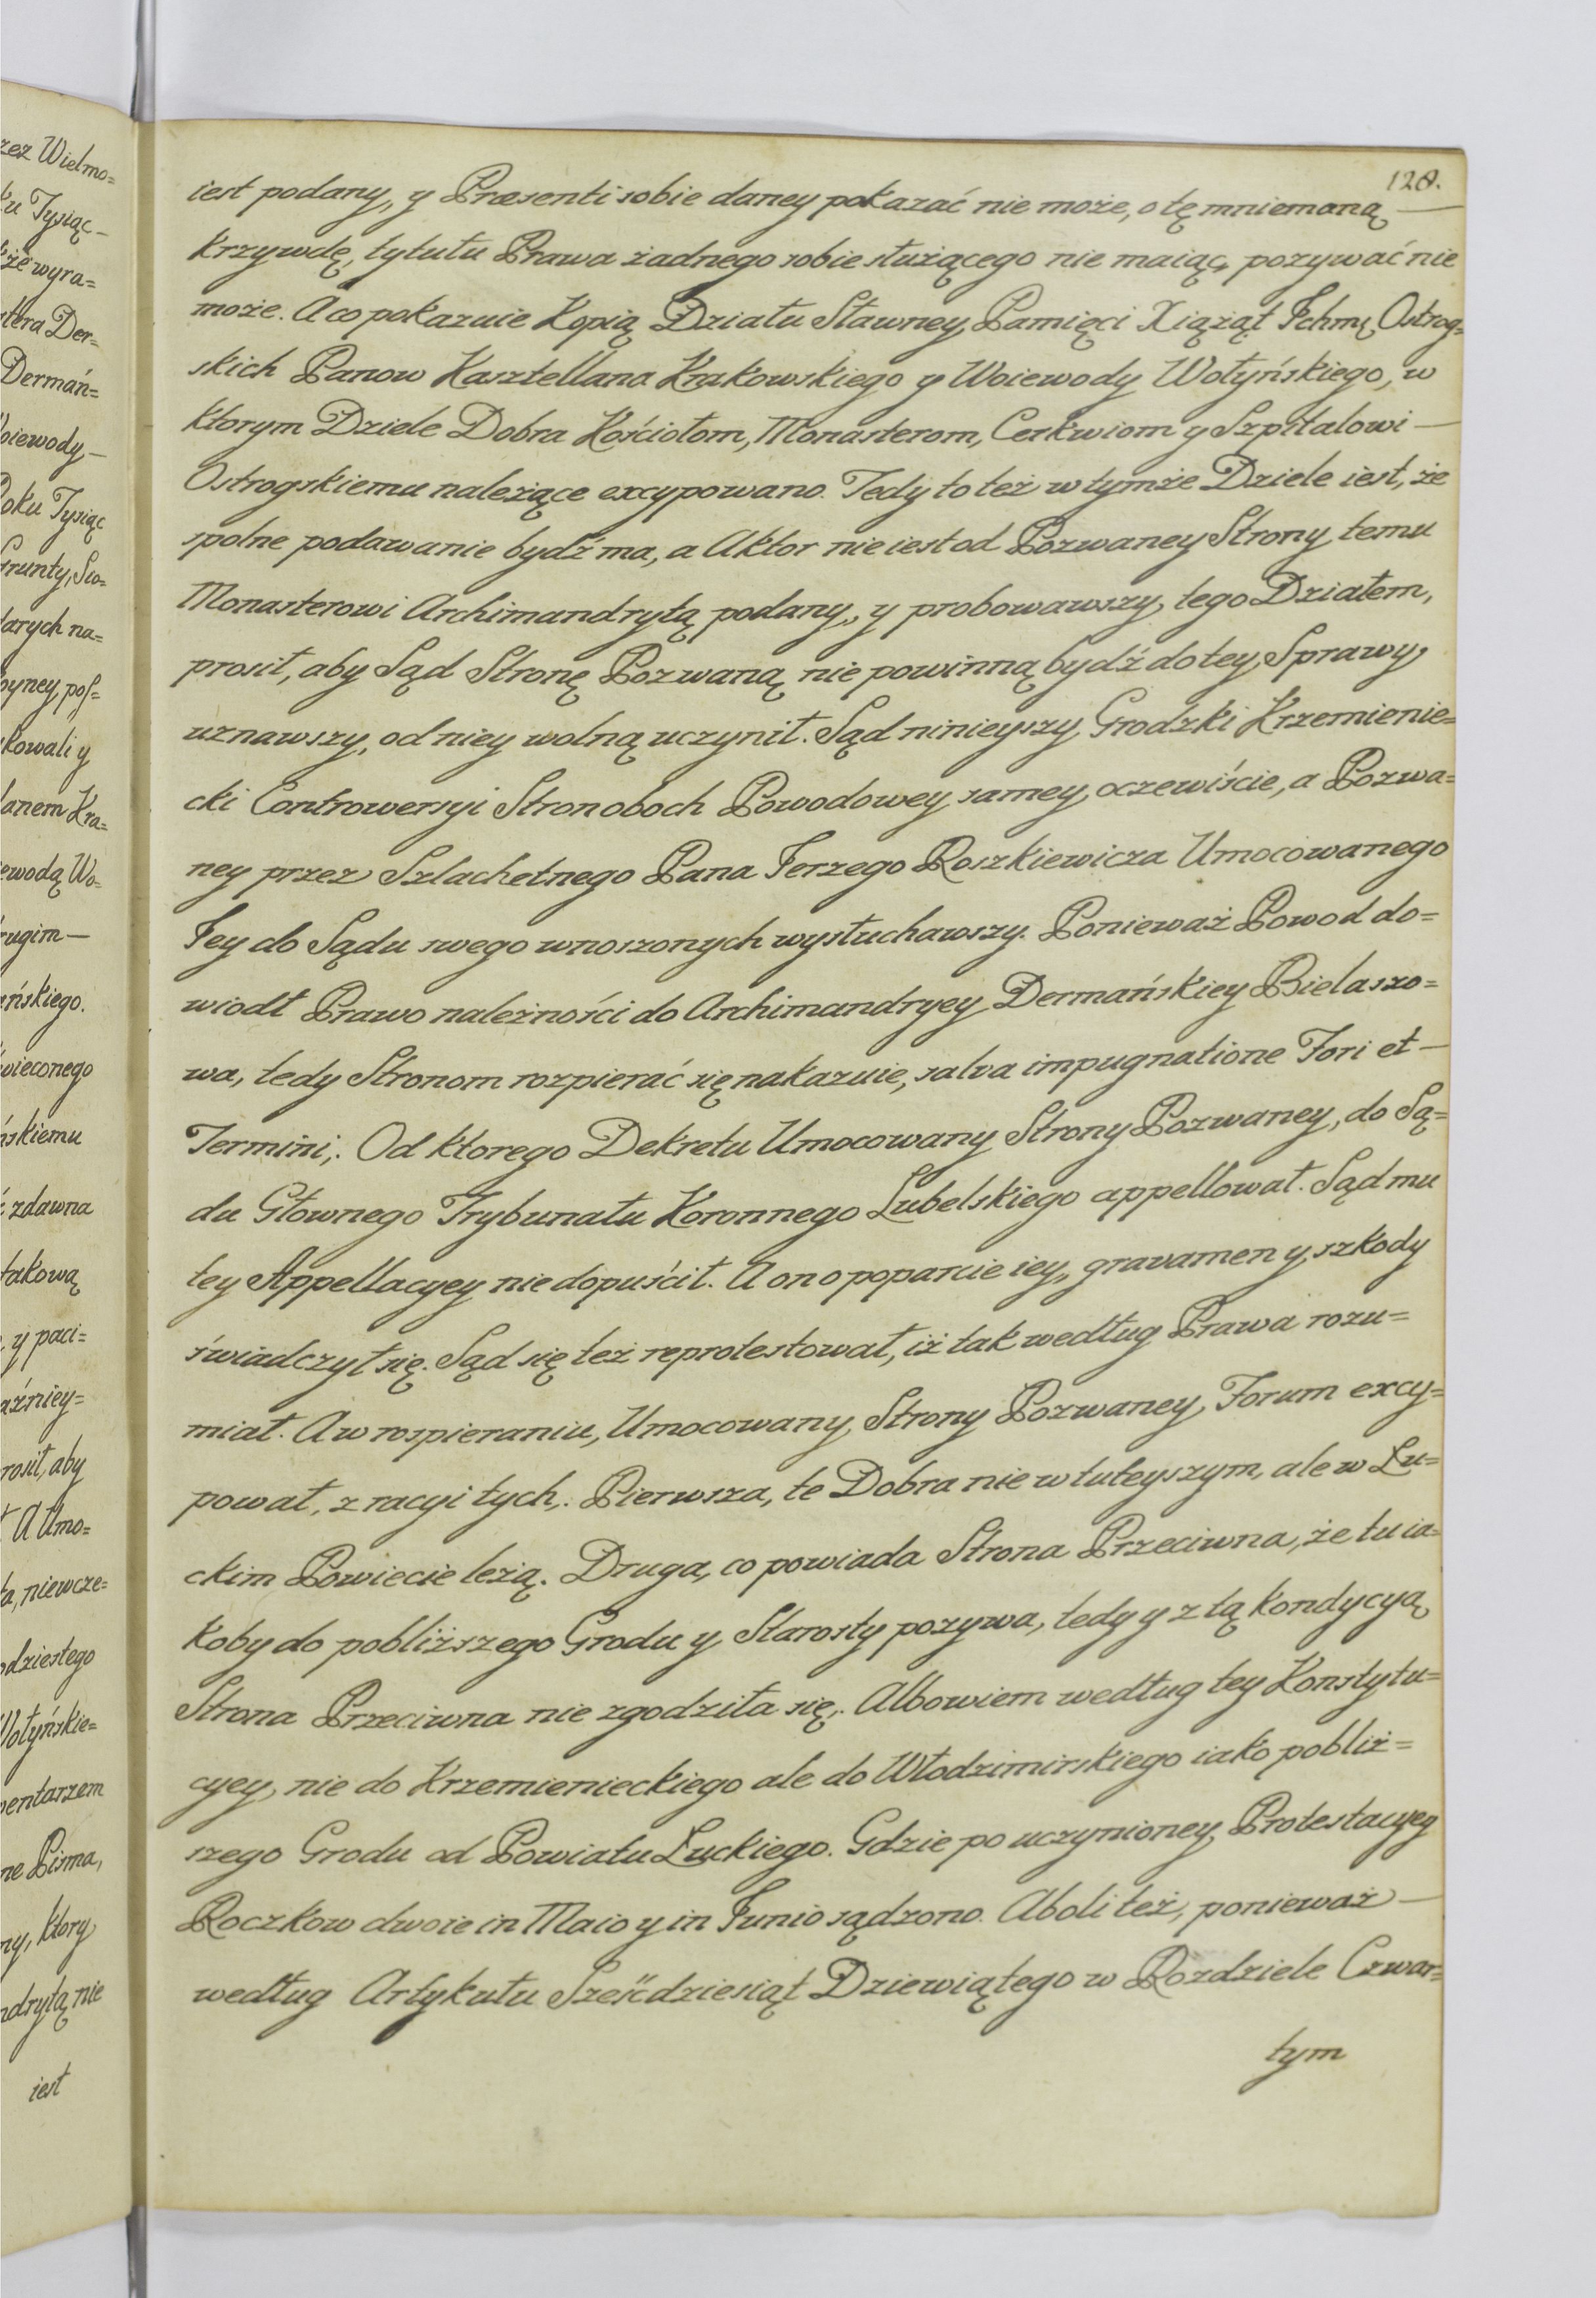 zez Wielmo=
ku Tysiąc_
kże wyra=
stera Der=
Dermań=
oiewody,—
oku Tysiąc
Grunty, Sio=
darych na=
byney pos=
kowali y
lanem Kra=
ewodą Wo=
rugim—
eńskiego.
więconego
ńskiemu
ć zdawna
takową
, y paci=
aźniey=
rosił, aby
A Umo=
ta, niewcze=
odziestego
Wołyńskie=
wentarzem
ne Pisma,
ny, ktory
ndrytą nie
iest
128.
iest podany, y Præsenti sobie daney pokazać nie może, o tę mniemaną —
krzywdę, tytułu Prawa żadnego sobie służącego nie maiąc, pozywać nie
może. A co pokazuie Kopią Działu Sławney Pamięci Xiążąt Ichmę Ostrog=
skich Panow Kasztellana Krakowskiego y Woiewody Wołyńskiego, w
ktorym Dziele Dobra Kościołom, Monasterom, Cerkwiom y Szpitalowi —
Ostrogskiemu należące excypowano. Tedy to też w tymże Dziele iest, że
spolne podawanie bydź ma, a Aktor nie iest od Pozwaney Strony temu
Monasterowi Archimandrytą podany, y probowawszy tego Działem,
prosił, aby Sąd Stronę Pozwaną nie powinną bydź do tey Sprawy
uznawszy, od niey wolną uczynił. Sąd ninieyszy Grodzki Krzemienie=
cki Controwersyi Stron oboch Powodowey samey oczewiście, a Pozwa=
ney przez Szlachetnego Pana Ierzego Roszkiewicza Umocowanego
Iey do Sądu swego wnoszonych wysłuchawszy. Ponieważ Powod do=
wiodł Prawo należności do Archimandryey Dermańskiey Bielaszo=
wa, tedy Stronom rozpierać się nakazuie, salva impugnatione Fori et —
Termini,. Od ktorego Dekretu Umocowany Strony Pozwaney, do Są=
du Głownego Trybunału Koronnego Lubelskiego appellował. Sąd mu
tey Appellacyey nie dopuścił. A on o poparcie iey, gravamen y szkody
świadczył się. Sąd się też reprotestował, iż tak według Prawa rozu=
miał. A w rospieraniu, Umocowany Strony Pozwaney, Forum excy=
pował, z racyi tych,. Pierwsza, te Dobra nie w tuteyszym, ale w Łu=
ckim Powiecie leżą. Druga, co powiada Strona Przeciwna, że tu ia=
koby do pobliższego Grodu y Starosty pozywa, tedy y z tą kondycyą
Strona Przeciwna nie zgodziła się,. Albowiem według tey Konstytu=
cyey, nie do Krzemienieckiego ale do Włodzimirskiego iako pobliż=
szego Grodu od Powiatu Łuckiego. Gdzie po uczynioney Protestacyey
Roczkow dwoie in Maio y in Iunio sądzono. Aboli też, ponieważ —
według Artykułu Sześćdziesiąt Dziewiątego w Rozdziele Czwar=
tym